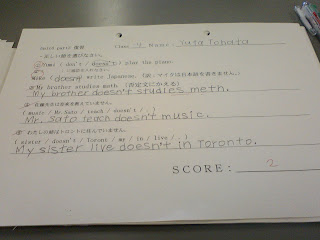 Class 4 Name: Yuta Tohata
Yumi ( don't / doesn't ) play the piano.
Mike ( doesn't write Japanese. (訳: マイクは日本語を書きません。)
② My brother studies meth. (否定文にかえる)
My brother doesn't studies meth.
( music / Mr.Sato / teach / doesn't / . )
Mr. Sato teach doesn't music.
( sister / doesn't / Toront / my / in / live / . )
My sister live doesn't in Toronto.
SCORE: 2